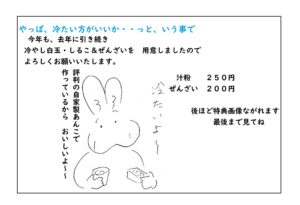 やっぱ、冷たい方がいいか・・っと、いう事で
今年も、去年に引き続き
冷やし白玉・しるこ&ぜんざいを　用意しましたので
よろしくお願いいたします。
汁粉　２５０円
ぜんざい　２００円
冷たいよ〜
評判の自家製あんこで
作っているから　おいしいよ〜
後ほど特典画像ながれます
最後まで見てね